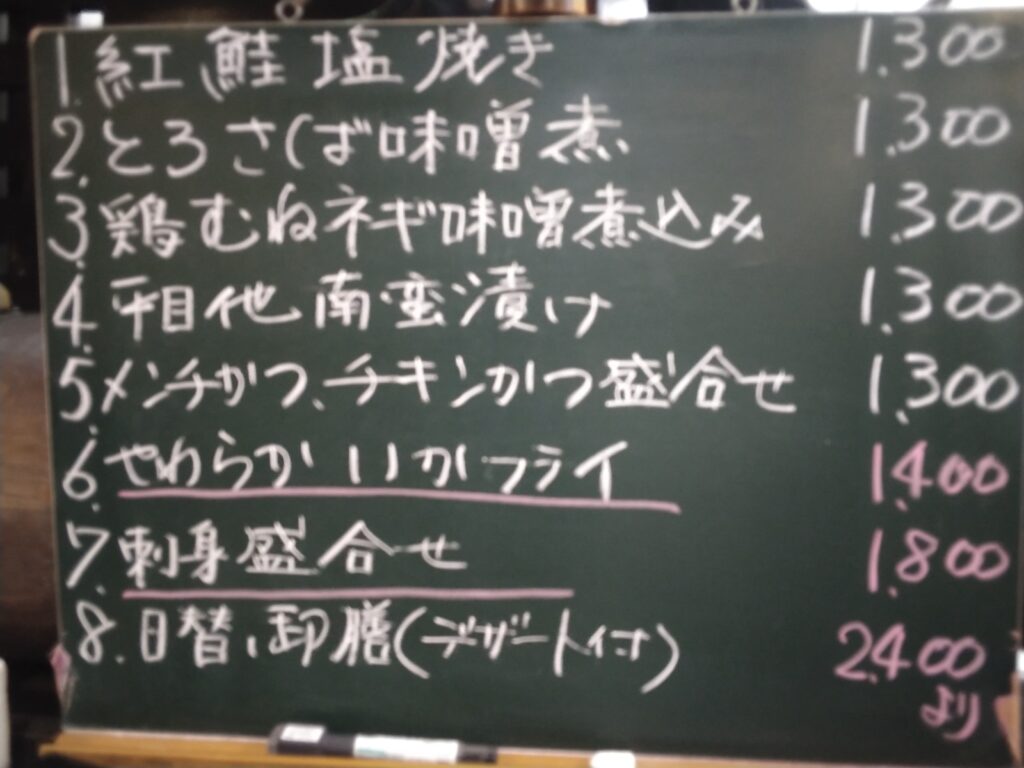 1. 紅鮭塩焼き 1.300
2. とろさば味噌煮 1.300
3. 鶏むねネギ味噌煮込み 1.300
4. 平目他南蛮漬け 1.300
5. メンチかつ、チキンかつ盛合せ 1.300
6. やわらかいかフライ 1.400
7. 刺身盛合せ 1.800
8. 日替り御膳(デザート付) 2.400
より